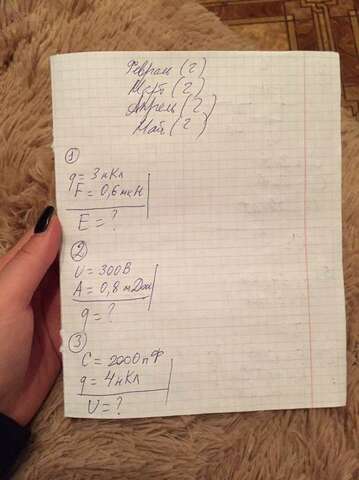 Февраль (2)
Март (2)
Апрель (2)
Май (2)
①
q = 3 нКл
F = 0,6 мкН
E = ?
②
U = 300В
A = 0,8 мДж
q = ?
③
C = 2000 пФ
q = 4 нКл
U = ?